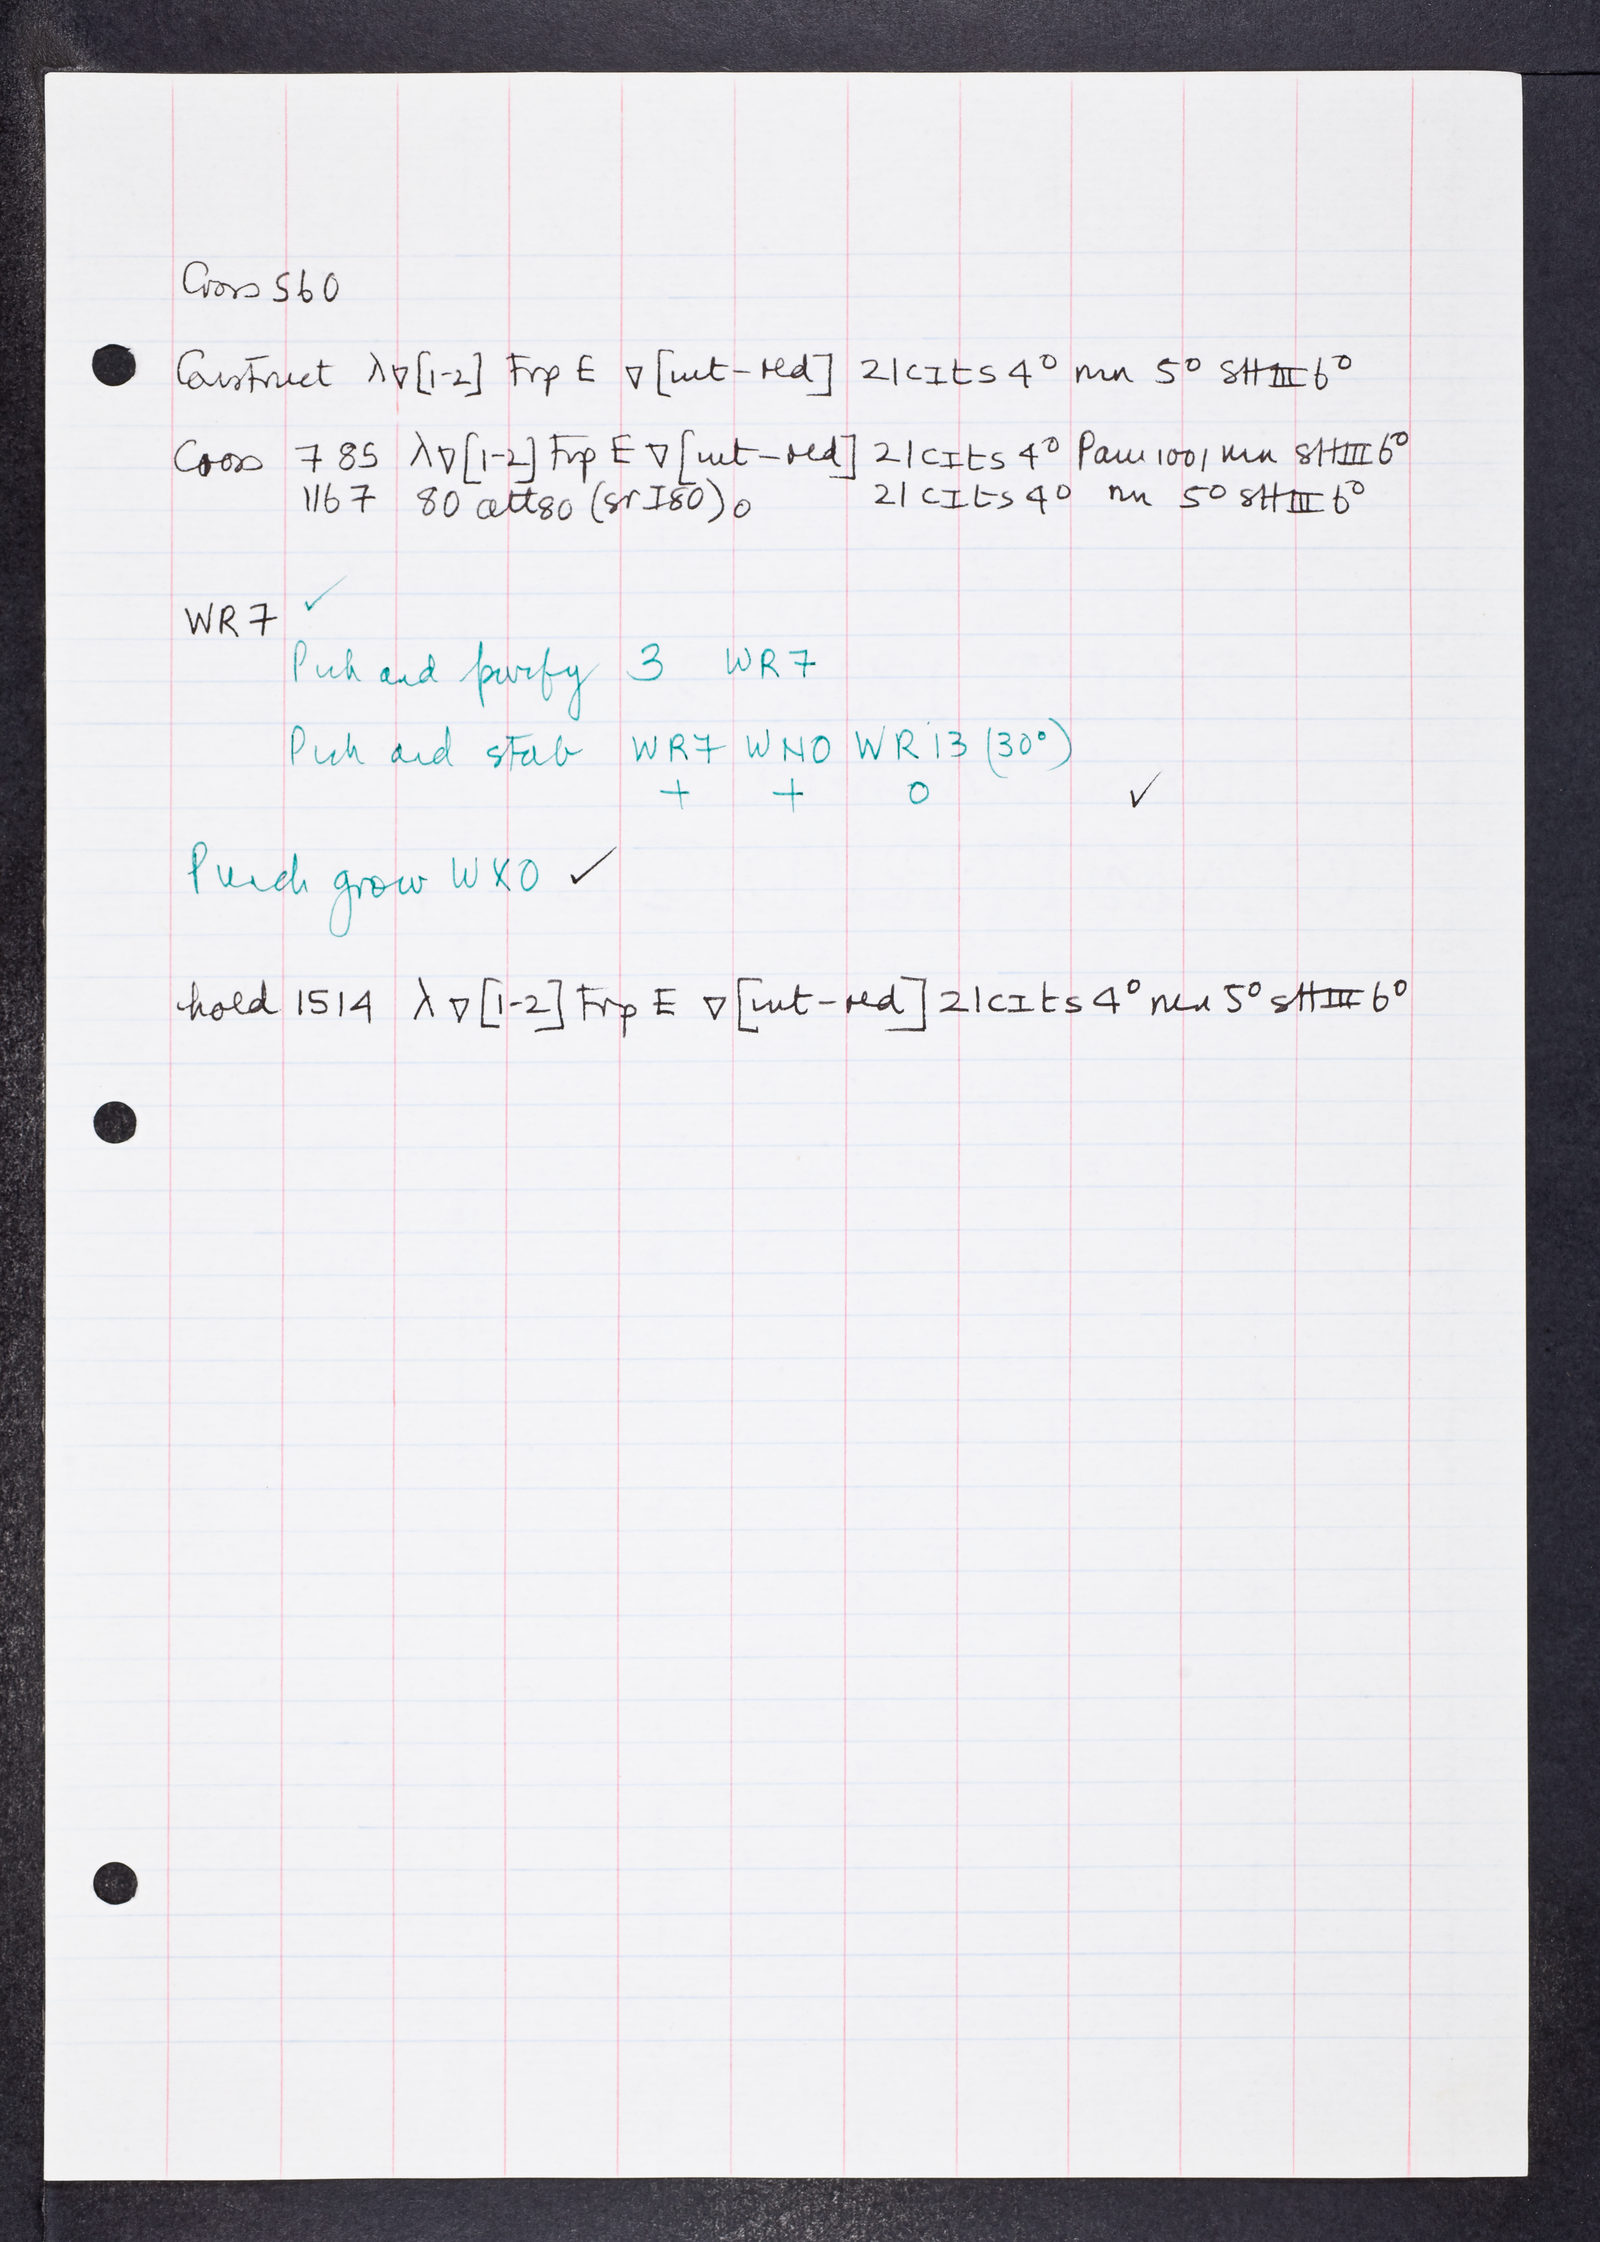 Cross 560
Construct λ∇[1-2] Trp E ∇[int-red] 21 cIts 4° nin 5° SHIII6°
Cross 785 λ∇[1-2] Trp E ∇[int-red] 21 cIts 4° Pam1001 nin SHIII6°
1167 80 att80 (srI80)0 21 cIts 4° nin 5° SHIII6°
WR7 ✓
Pick and purify 3 WR7
Pick and stab WR7 WNO WRi3 (30°)
+ + 0 ✓
Pick grow WXO ✓
hold 1514 λ∇[1-2] Trp E ∇[int-red] 21 cIts 4° nin 5° SHIII6°